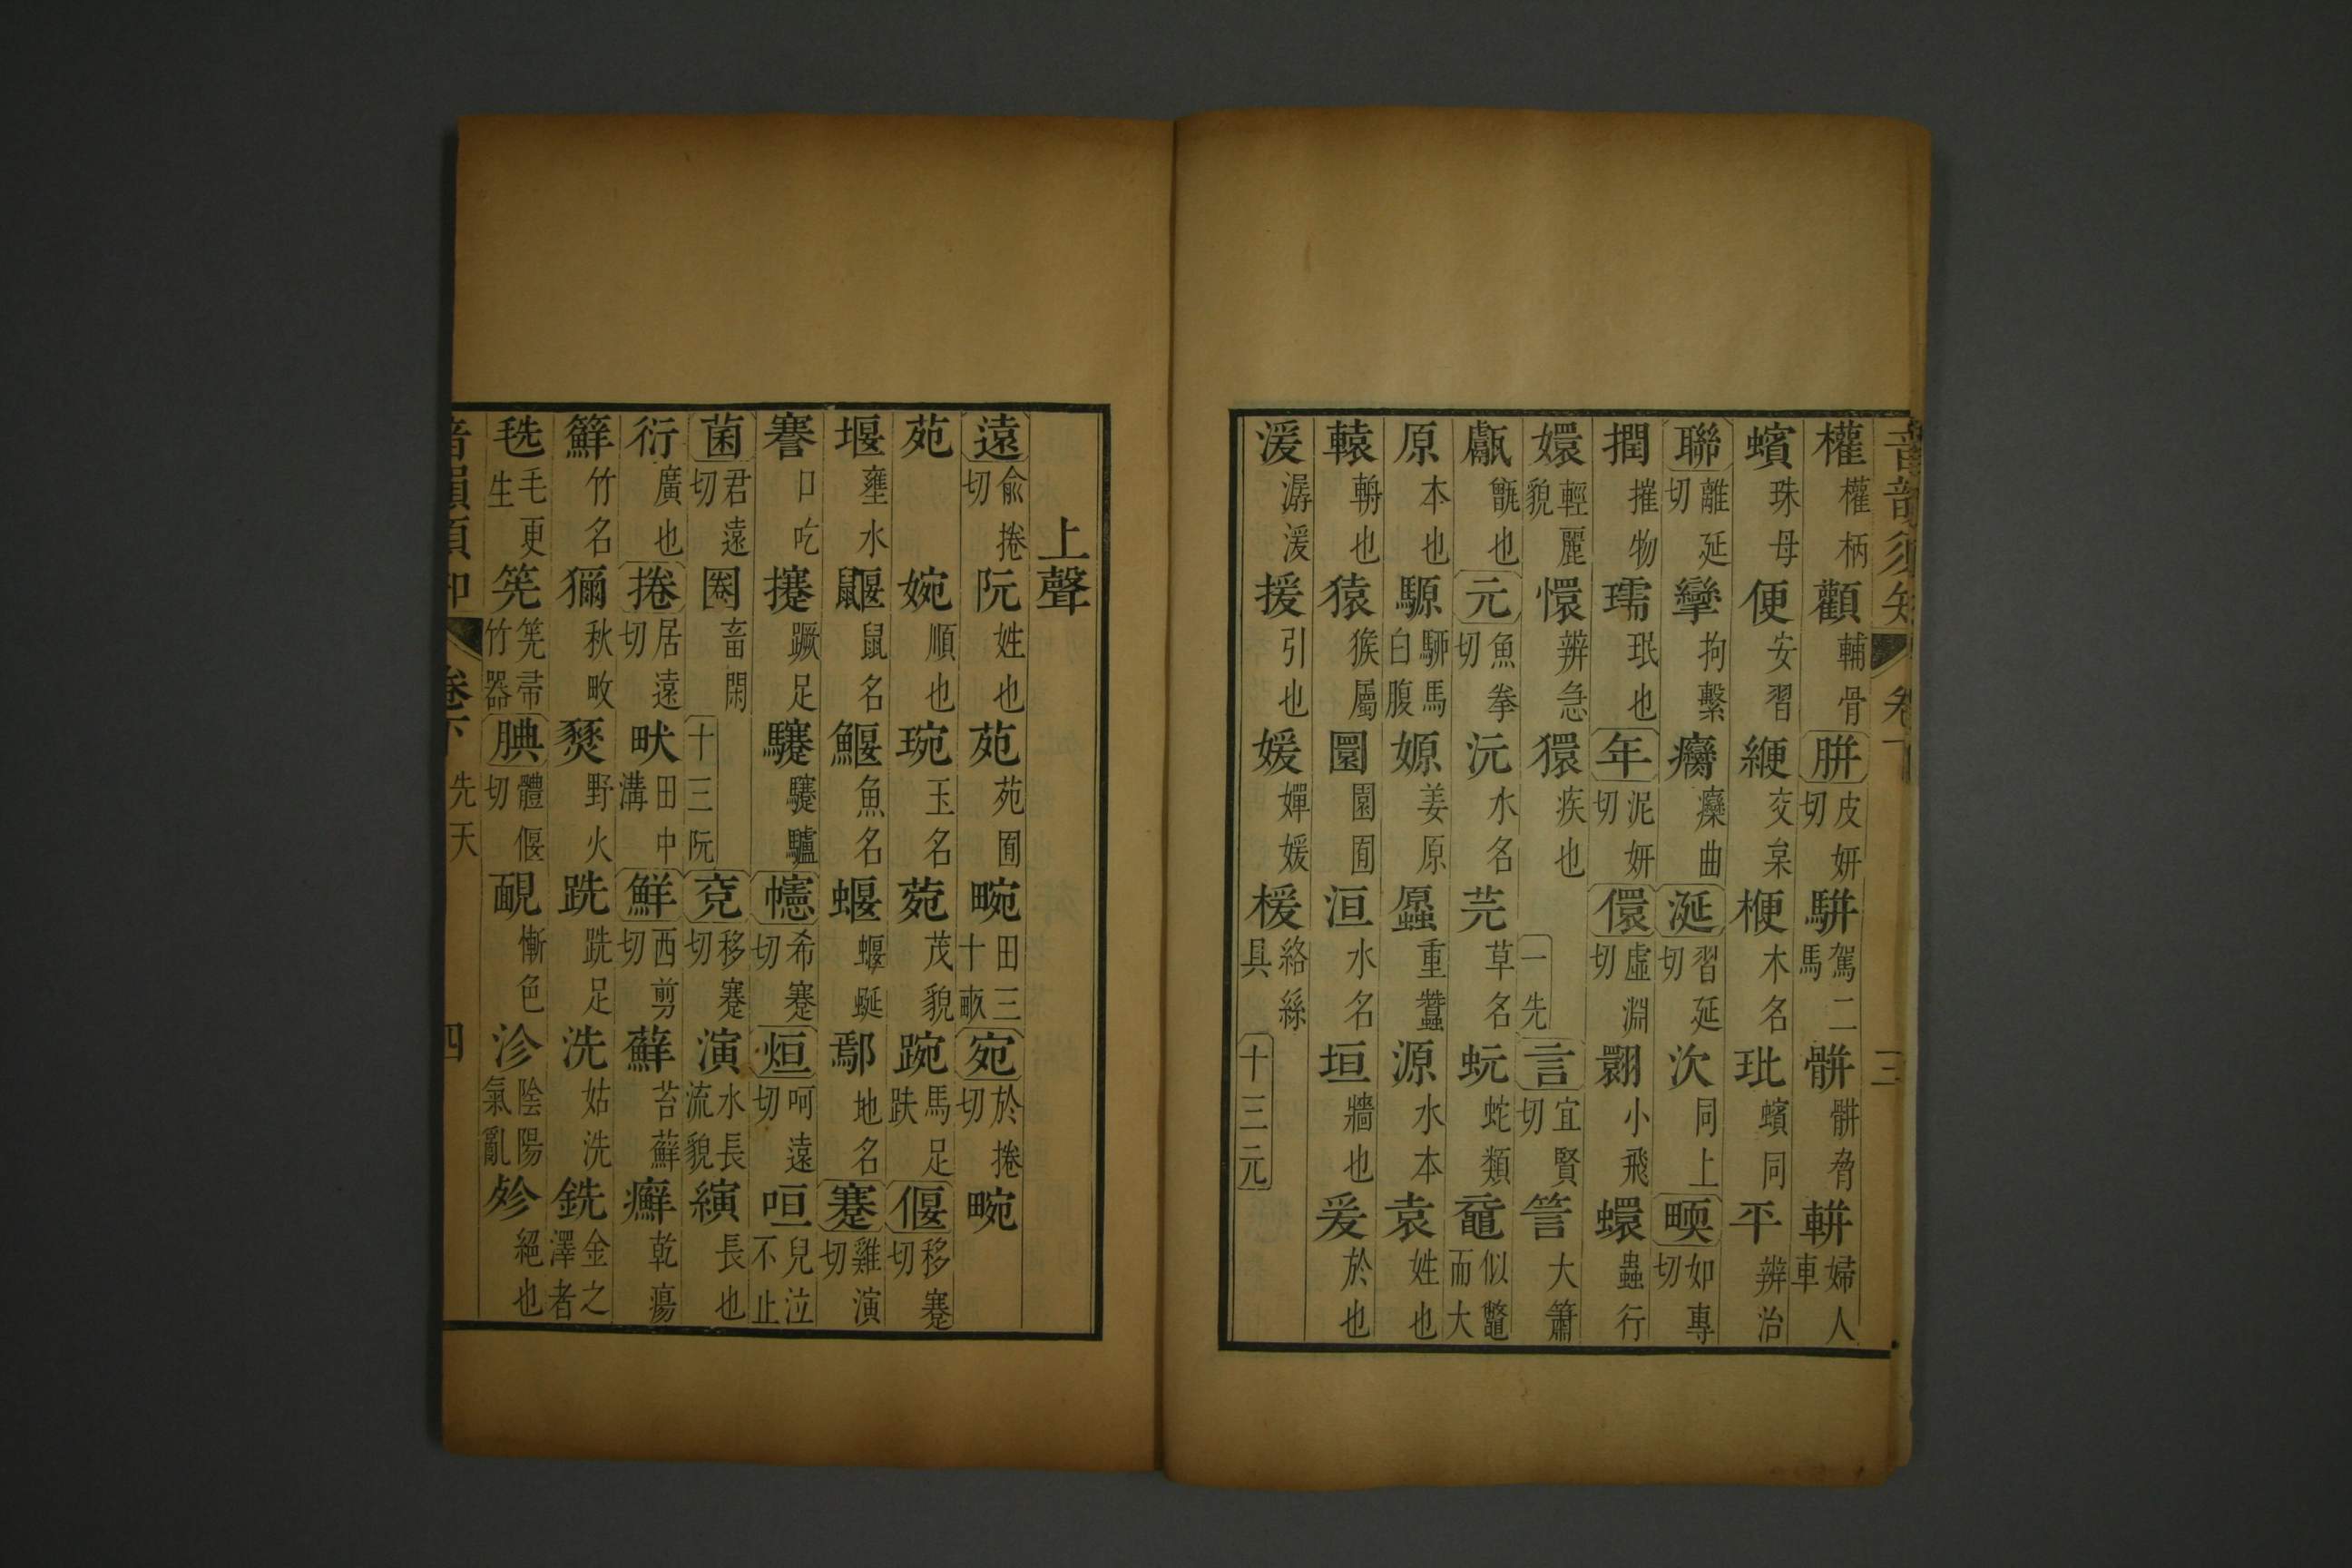 音韻須知 卷下 三
權權柄顴輔骨胼皮妍切騈駕二馬骿骿脅輧婦人車
蠙珠母便安習緶交枲楩木名玭蠙同平辨治
聯離延切攣拘繫癵癴曲涎習延切次同上
撋摧物瓀珉也年泥妍切儇虛淵切翾小飛蠉蟲行
嬛輕麗貌懁辨急獧疾也一先言宜賢切䇾大簫
甗甑也元魚拳切沅水名芫草名蚖蛇類黿似鼈而大
原本也騵駵馬白腹嫄姜原厵重蠶源水本袁姓也
轅輈也猿猴屬園園囿洹水名垣牆也爰於也
湲潺湲援引也媛嬋媛楥絡絲具十三元
上聲
遠兪捲切阮姓也苑苑囿畹田三十畝宛於捲切晼
菀婉順也琬玉名菀茂貌踠馬足跌偃移蹇切
堰壅水鼴鼠名鰋魚名蝘蝘蜒鄢地名蹇雞演切
謇口吃攓蹶足驐驢幰希蹇切烜呵遠切咺兒泣不止
菌君遠切圈畜閑十三阮兗移蹇切演水長流貌縯長也
衍廣也捲居遠切畎田中溝鮮西剪切蘚苔蘚癬乾瘍
籜竹名獮秋畋燹野火跣跣足洗姑洗銑金之澤者
毨毛更生筅筅帚竹器腆體偃切靦慚色沴陰陽氣亂殄絕也
音韻須知 卷下 先天 四